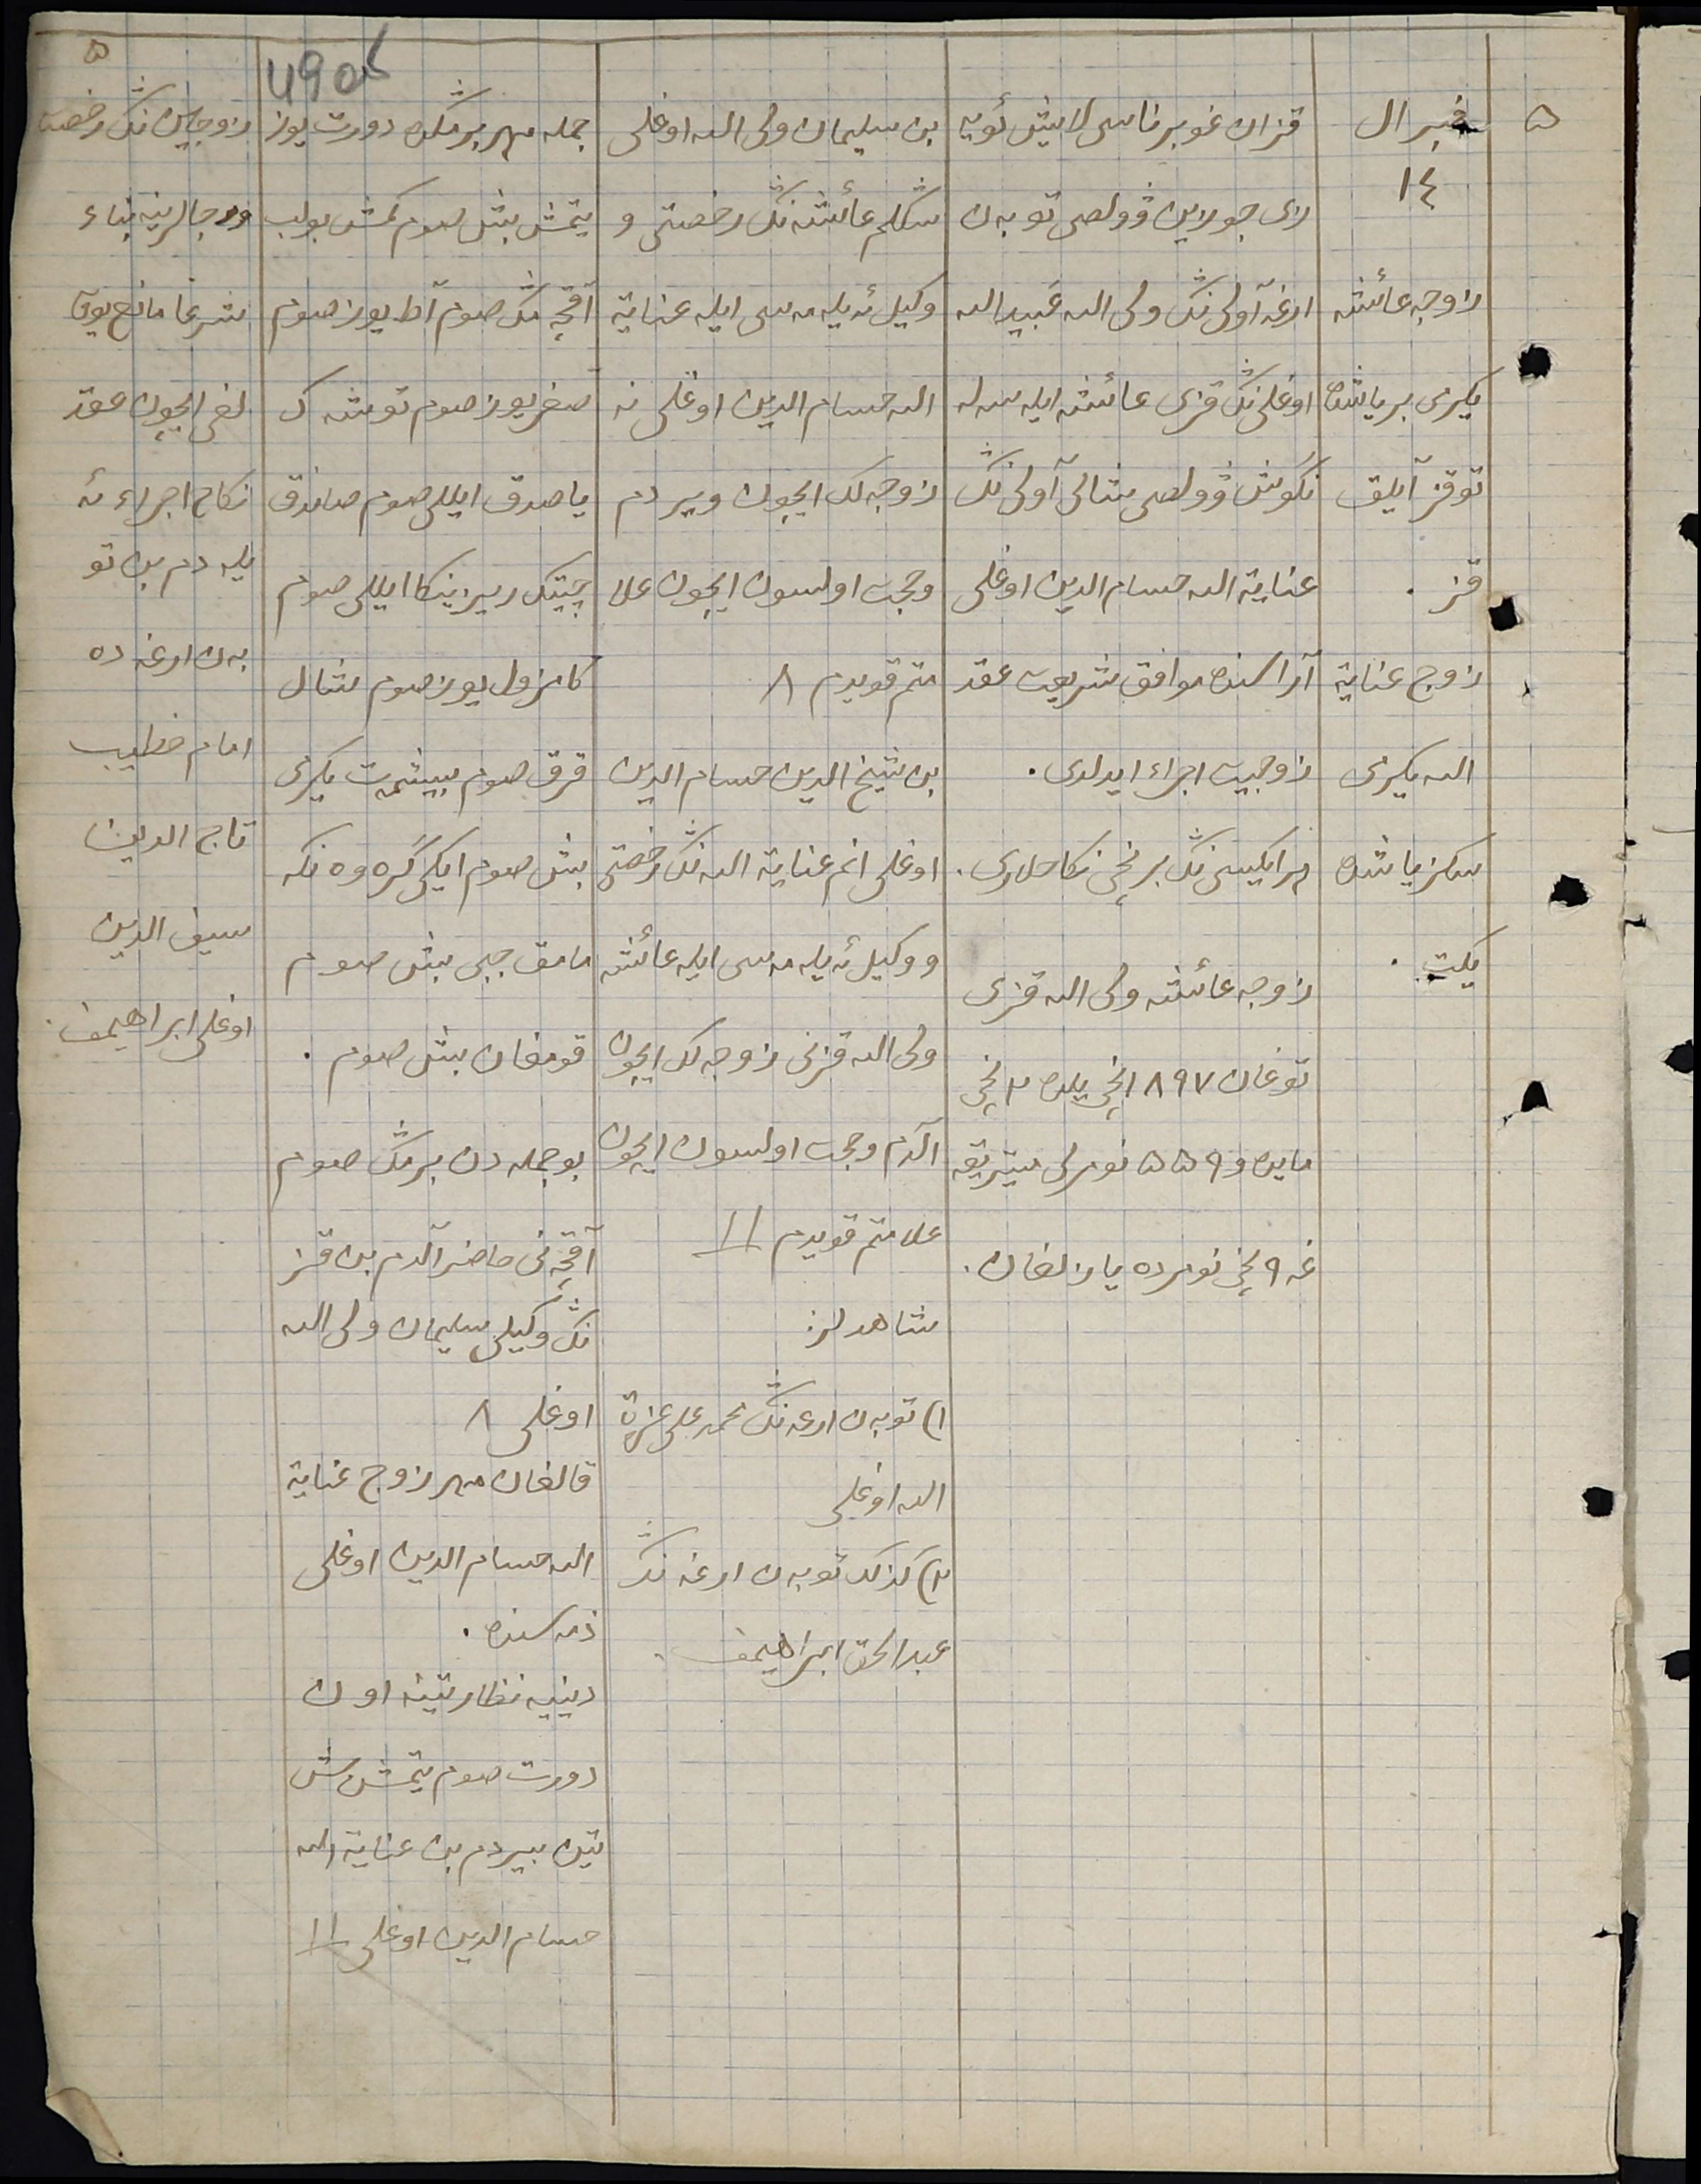 ۵
۴۹ob
۵
فبرال
١٤
زوجه عائشه
یکرمی بر یاشده
توقز آیلق
قز .
زوج عنایة
الله یکرمی
سکز یاشده
یکت .
قزان غوبرناسی لایش ئویه
زی جورلاین ۋولصی توبەن
ارغە آولی نڭ ولی الله عبیدالله
اوغلی نڭ قزی عائشه ایله سەلە
نگوش ۋولصی شالی آولی نڭ
عنایة الله حسام الدین اوغلی
آراسنده موافق شریعت عقد
زوجییت اجراء ایدلدی .
هر ایکیسی نڭ برنچی نکاحلاری .
زوجه عائشه ولی الله قزی
توغان ١٨٩٧ نچی یلده ٢ نچی
مایده و ۵۵٩ نومرلی میتریقه
غه ٩ نچی نومرده یازلغان .
بن سلیمان ولی الله اوغلی
سڭلم عائشه نڭ رخصتی و
وکیل ئەیلەمەسی ایله عنایة
الله حسام الدین اوغلی نە
زوجه لک ایچون ویردم
وحجت اولسون ایچون علا
متم قویدم ٨
بن شیخ الدین حسام الدین
اوغلی انم عنایة الله نڭ رخصتی
و وکیل ئەیلەمەسی ایله عائشه
ولی الله قزنی زوجه لک ایچون
آلدم وحجت اولسون ایچون
علامتم قویدم //
شاهدلر:
١) توبەن ارغە نڭ محمد علی عزة
الله اوغلی
٢) کذلک توبەن ارغە نڭ
عبدالحق ابراهیمف .
جمله مهر بر مڭده دورت یوز
یتمش بش صوم کمش بولب
آقچه مڭ صوم آط یوز صوم
صغر یوز صوم توشەک
یاصدق ایللی صوم صاندق
چیتک ریزینکا ایللی صوم
کامزول یوز صوم شال
قرق صوم بیشمیت یکرمی
بش صوم ایکی گرەوەنکە
مامق جبی بش صوم
قومغان بش صوم .
بو جمله دن بر مڭ صوم
آقچه نی حاضر آلدم بن قز
نڭ وکیلی سلیمان ولی الله
اوغلی ٨
قالغان مهر زوج عنایة
الله حسام الدین اوغلی
ذمه سنده .
دینیه نظارتینه اون
دورت صوم یتمش بش
تین بیردم بن عنایة الله
حسام الدین اوغلی //
زوجین نڭ رخصت
ورجالرینه بناء
شرعا مانع یوق
لغی ایچون عقد
نکاح اجراء ئە
یلەدم بن تو
بەن ارغەدە
امام خطیب
تاج الدین
سیف الدین
اوغلی ابراهیمف .